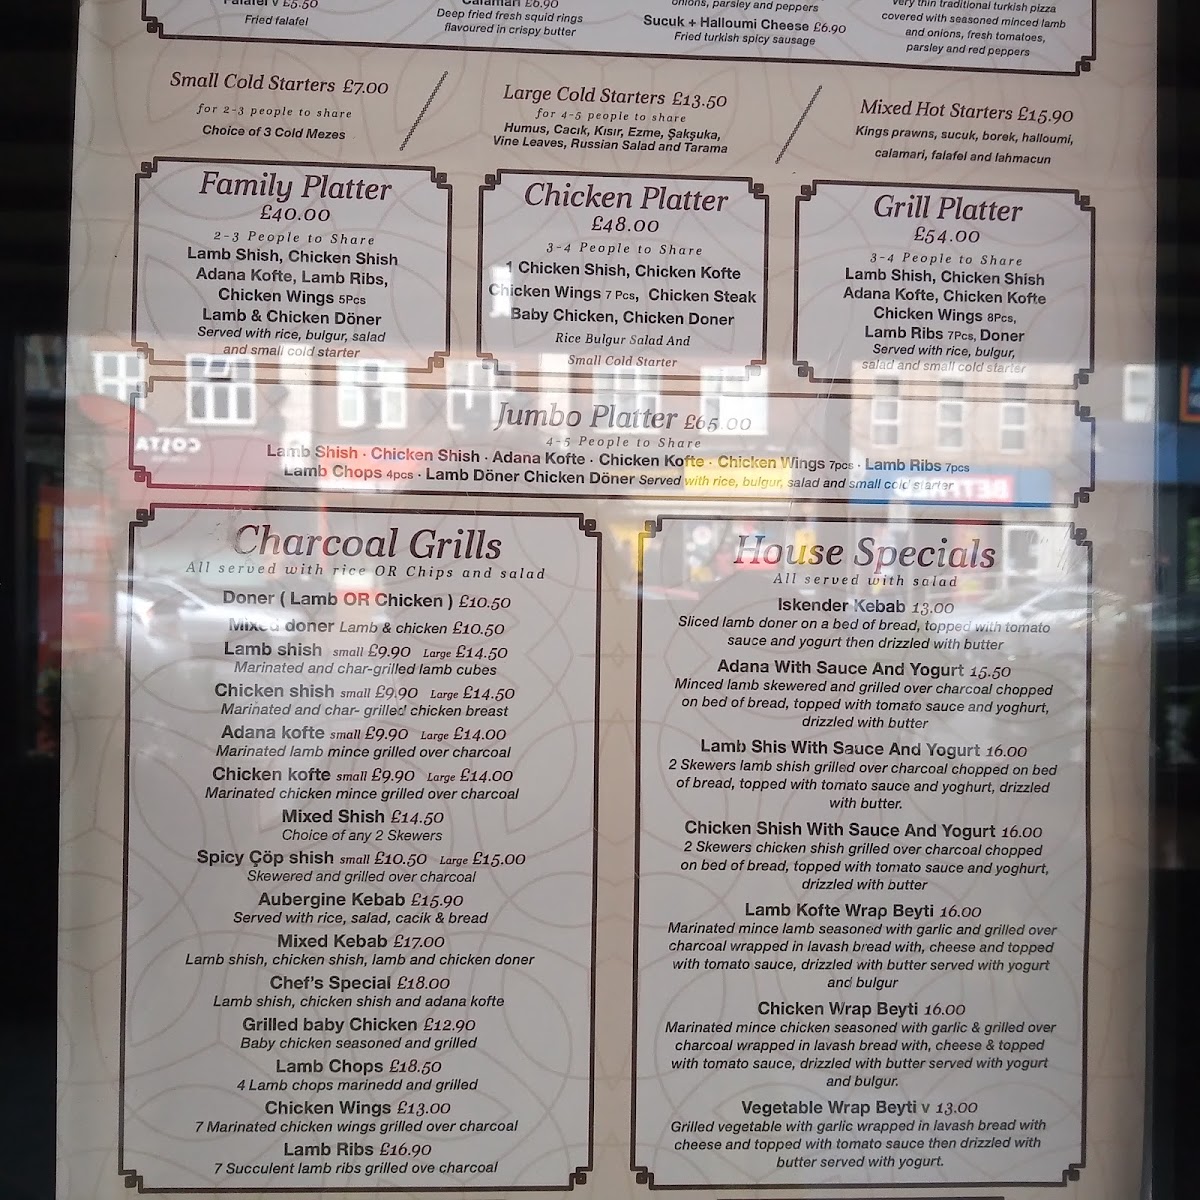 Falafel v £5.50
Fried falafel
Calamari £6.90
Deep fried fresh squid rings
flavoured in crispy butter
onions, parsley and peppers
Sucuk + Halloumi Cheese £6.90
Fried turkish spicy sausage
very thin traditional turkish pizza
covered with seasoned minced lamb
and onions, fresh tomatoes,
parsley and red peppers
Small Cold Starters £7.00
for 2-3 people to share
Choice of 3 Cold Mezes
Large Cold Starters £13.50
for 4-5 people to share
Humus, Cacık, Kısır, Ezme, Şakşuka,
Vine Leaves, Russian Salad and Tarama
Mixed Hot Starters £15.90
Kings prawns, sucuk, borek, halloumi,
calamari, falafel and lahmacun
Family Platter
£40.00
2-3 People to Share
Lamb Shish, Chicken Shish
Adana Kofte, Lamb Ribs,
Chicken Wings 5Pcs
Lamb & Chicken Döner
Served with rice, bulgur, salad
and small cold starter
Chicken Platter
£48.00
3-4 People to Share
1 Chicken Shish, Chicken Kofte
Chicken Wings 7 Pcs, Chicken Steak
Baby Chicken, Chicken Doner
Rice Bulgur Salad And
Small Cold Starter
Grill Platter
£54.00
3-4 People to Share
Lamb Shish, Chicken Shish
Adana Kofte, Chicken Kofte
Chicken Wings 8Pcs,
Lamb Ribs 7Pcs, Doner
Served with rice, bulgur,
salad and small cold starter
Jumbo Platter £65.00
4-5 People to Share
Lamb Shish · Chicken Shish · Adana Kofte · Chicken Kofte · Chicken Wings 7pcs · Lamb Ribs 7pcs
Lamb Chops 4pcs · Lamb Döner Chicken Döner Served with rice, bulgur, salad and small cold starter
COSTA
Charcoal Grills
All served with rice OR Chips and salad
Doner ( Lamb OR Chicken ) £10.50
Mixed doner Lamb & chicken £10.50
Lamb shish small £9.90 Large £14.50
Marinated and char-grilled lamb cubes
Chicken shish small £9.90 Large £14.50
Marinated and char- grilled chicken breast
Adana kofte small £9.90 Large £14.00
Marinated lamb mince grilled over charcoal
Chicken kofte small £9.90 Large £14.00
Marinated chicken mince grilled over charcoal
Mixed Shish £14.50
Choice of any 2 Skewers
Spicy Çöp shish small £10.50 Large £15.00
Skewered and grilled over charcoal
Aubergine Kebab £15.90
Served with rice, salad, cacik & bread
Mixed Kebab £17.00
Lamb shish, chicken shish, lamb and chicken doner
Chef's Special £18.00
Lamb shish, chicken shish and adana kofte
Grilled baby Chicken £12.90
Baby chicken seasoned and grilled
Lamb Chops £18.50
4 Lamb chops marinedd and grilled
Chicken Wings £13.00
7 Marinated chicken wings grilled over charcoal
Lamb Ribs £16.90
7 Succulent lamb ribs grilled ove charcoal
House Specials
All served with salad
Iskender Kebab 13.00
Sliced lamb doner on a bed of bread, topped with tomato
sauce and yogurt then drizzled with butter
Adana With Sauce And Yogurt 15.50
Minced lamb skewered and grilled over charcoal chopped
on bed of bread, topped with tomato sauce and yoghurt,
drizzled with butter
Lamb Shis With Sauce And Yogurt 16.00
2 Skewers lamb shish grilled over charcoal chopped on bed
of bread, topped with tomato sauce and yoghurt, drizzled
with butter.
Chicken Shish With Sauce And Yogurt 16.00
2 Skewers chicken shish grilled over charcoal chopped
on bed of bread, topped with tomato sauce and yoghurt,
drizzled with butter
Lamb Kofte Wrap Beyti 16.00
Marinated mince lamb seasoned with garlic and grilled over
charcoal wrapped in lavash bread with, cheese and topped
with tomato sauce, drizzled with butter served with yogurt
and bulgur
Chicken Wrap Beyti 16.00
Marinated mince chicken seasoned with garlic & grilled over
charcoal wrapped in lavash bread with, cheese & topped
with tomato sauce, drizzled with butter served with yogurt
and bulgur.
Vegetable Wrap Beyti v 13.00
Grilled vegetable with garlic wrapped in lavash bread with
cheese and topped with tomato sauce then drizzled with
butter served with yogurt.